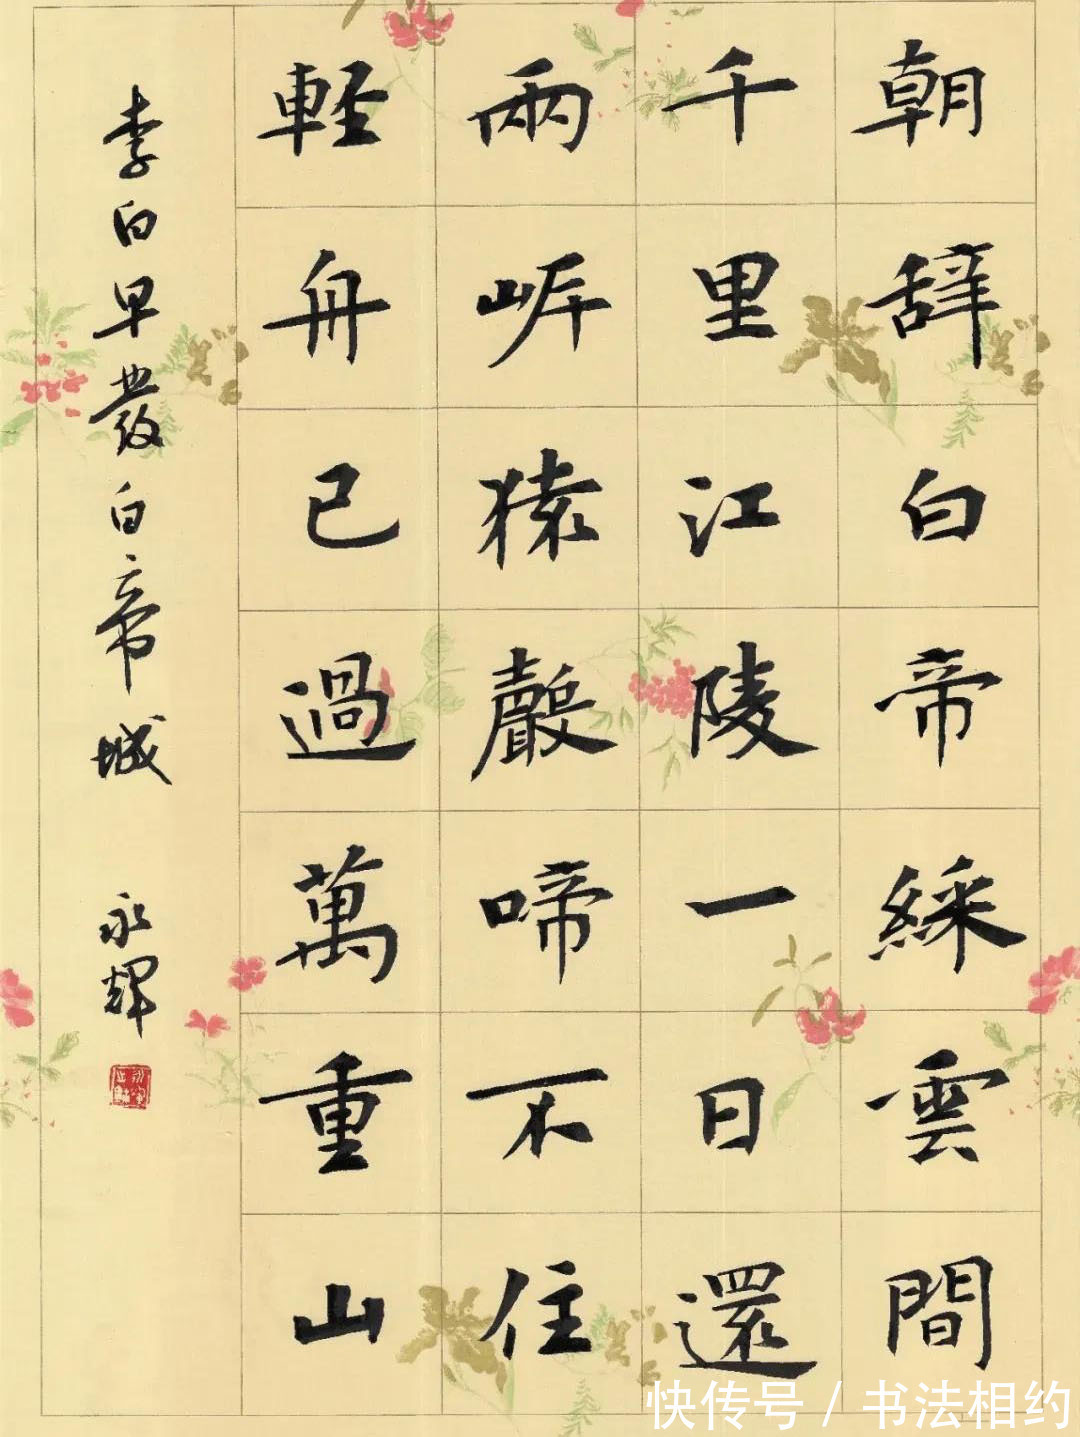 朝辞白帝綵雲間
千里江陵一日還
兩岸猿聲啼不住
輕舟已過萬重山
李白早發白帝城 永輝
快传号 / 书法相约